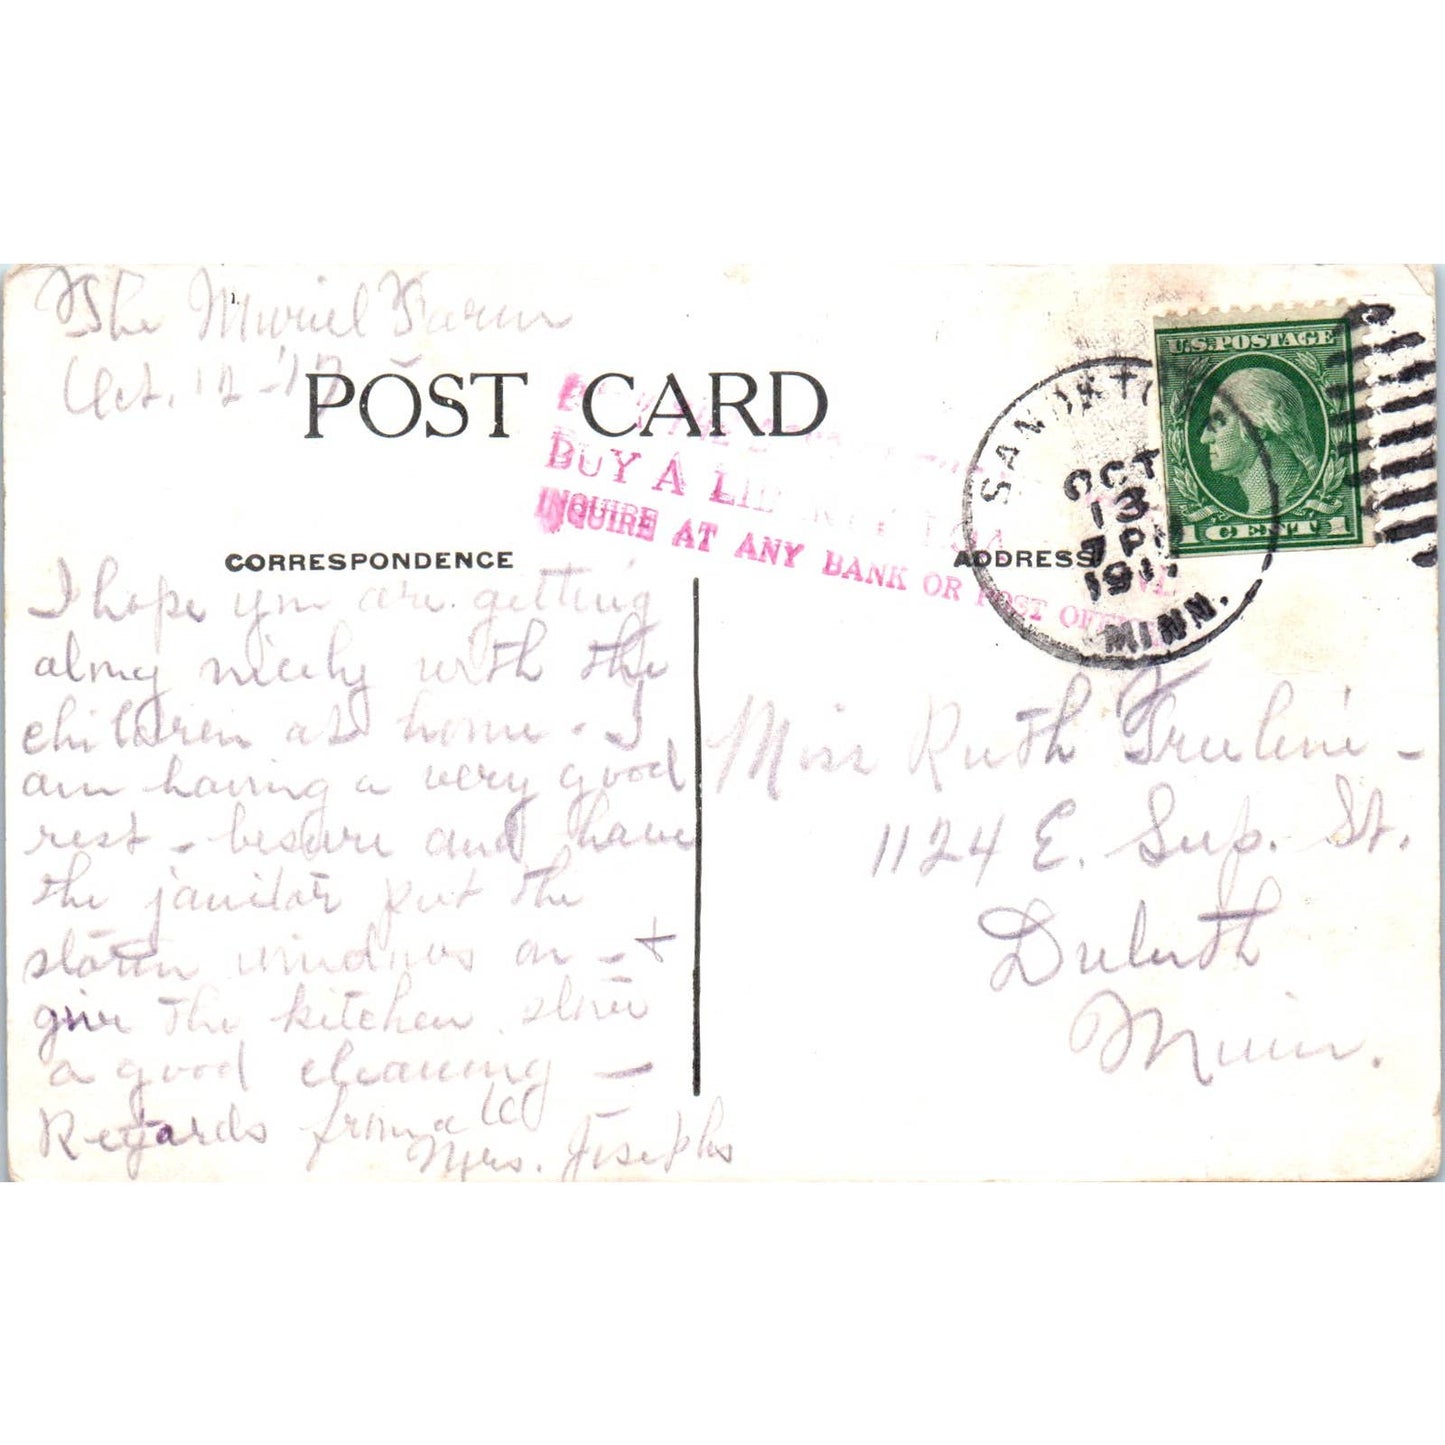 The Muriel Farm
Oct. 12 - '17
POST CARD
BUY A LIBERTY
INQUIRE AT ANY BANK OR POST OFFICE
U.S. POSTAGE
1 CENT 1
OCT
13
7 PM
191
MINN.
CORRESPONDENCE
ADDRESS
I hope you are getting
along nicely with the
children at home - I
am having a very good
rest - be sure and have
the janitor put the
storm windows on - +
give the kitchen stove
a good cleaning -
Regards from all
Mrs. Josephs
Miss Ruth
1124 E. Sup. St.
Duluth
Minn.